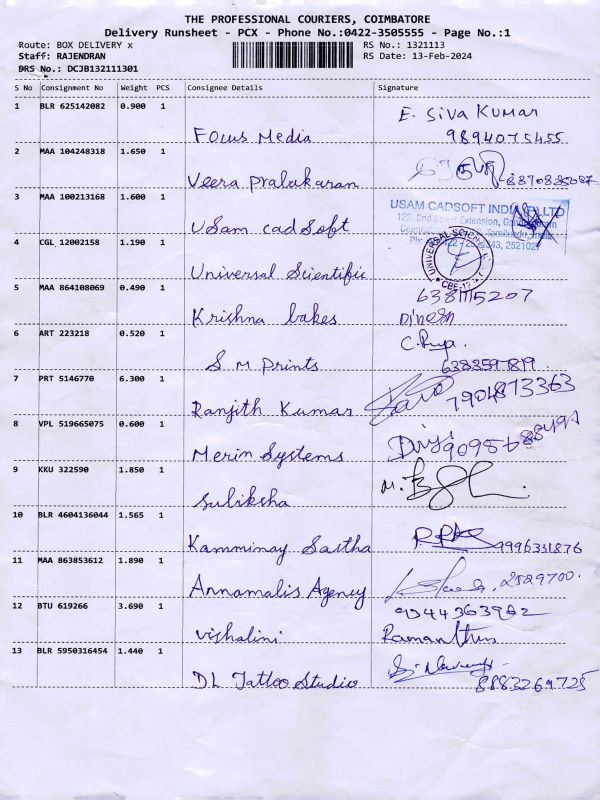 THE PROFESSIONAL COURIERS, COIMBATORE
Delivery Runsheet - PCX - Phone No.:0422-3505555 - Page No.:1
Route: BOX DELIVERY x
RS No.: 1321113
Staff: RAJENDRAN
RS Date: 13-Feb-2024
DRS No.: DCJB132111301
S No Consignment No Weight PCS Consignee Details Signature
1 BLR 625142082 0.900 1
E. Siva Kumar
Focus Media 9894075455
2 MAA 104248318 1.650 1
Veera Prabakaran
3 MAA 100213168 1.600 1
USAM CADSOFT INDIA P LTD
122, 2nd Street Extension,
USam cadSoft
4 CGL 12002158 1.190 1
UNIVERSAL SCIENTIFIC
Universal Scientific
5 MAA 864108069 0.490 1
6381115207
Krishna bakes Dinesh
6 ART 223218 0.520 1
S M Prints 6383597819
7 PRT 5146770 6.300 1
Ranjith Kumar 7904873363
8 VPL 519665075 0.600 1
Merin Systems
9 KKU 322590 1.850 1
Subiksha
10 BLR 4604136044 1.565 1
Kamminay Sastha 9996331876
11 MAA 863853612 1.890 1
Annamalis Agency 2529700.
12 BTU 619266 3.690 1
9344363982
Vishalini
13 BLR 5950316454 1.440 1
DL Tattoo Studio 8883269725